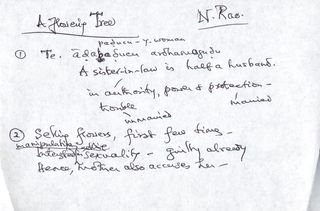 A Flowering Tree N. Rao.
paducu - y. woman
① Te. ādapaducu ardhamagudu
A sister-in-law is half a husband.
in authority, power & protection -
trouble married
unmarried
② Selling flowers, first few times -
manipulative
sexuality - guilty already
Hence, mother also accuses her -